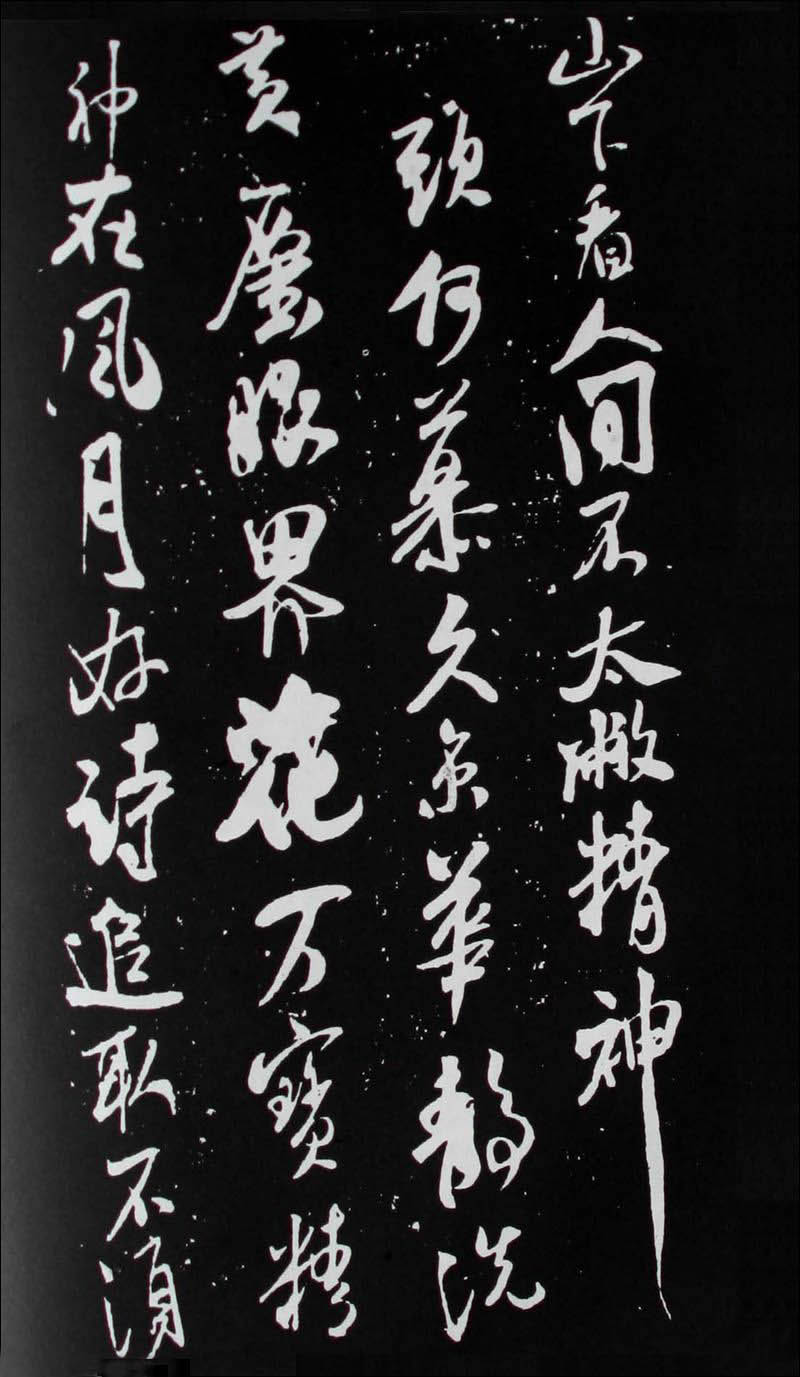 山下看人間不太敝精神
頭何慕久京華静洗
黄塵眼界花万寶精
神在風月好詩追取不須